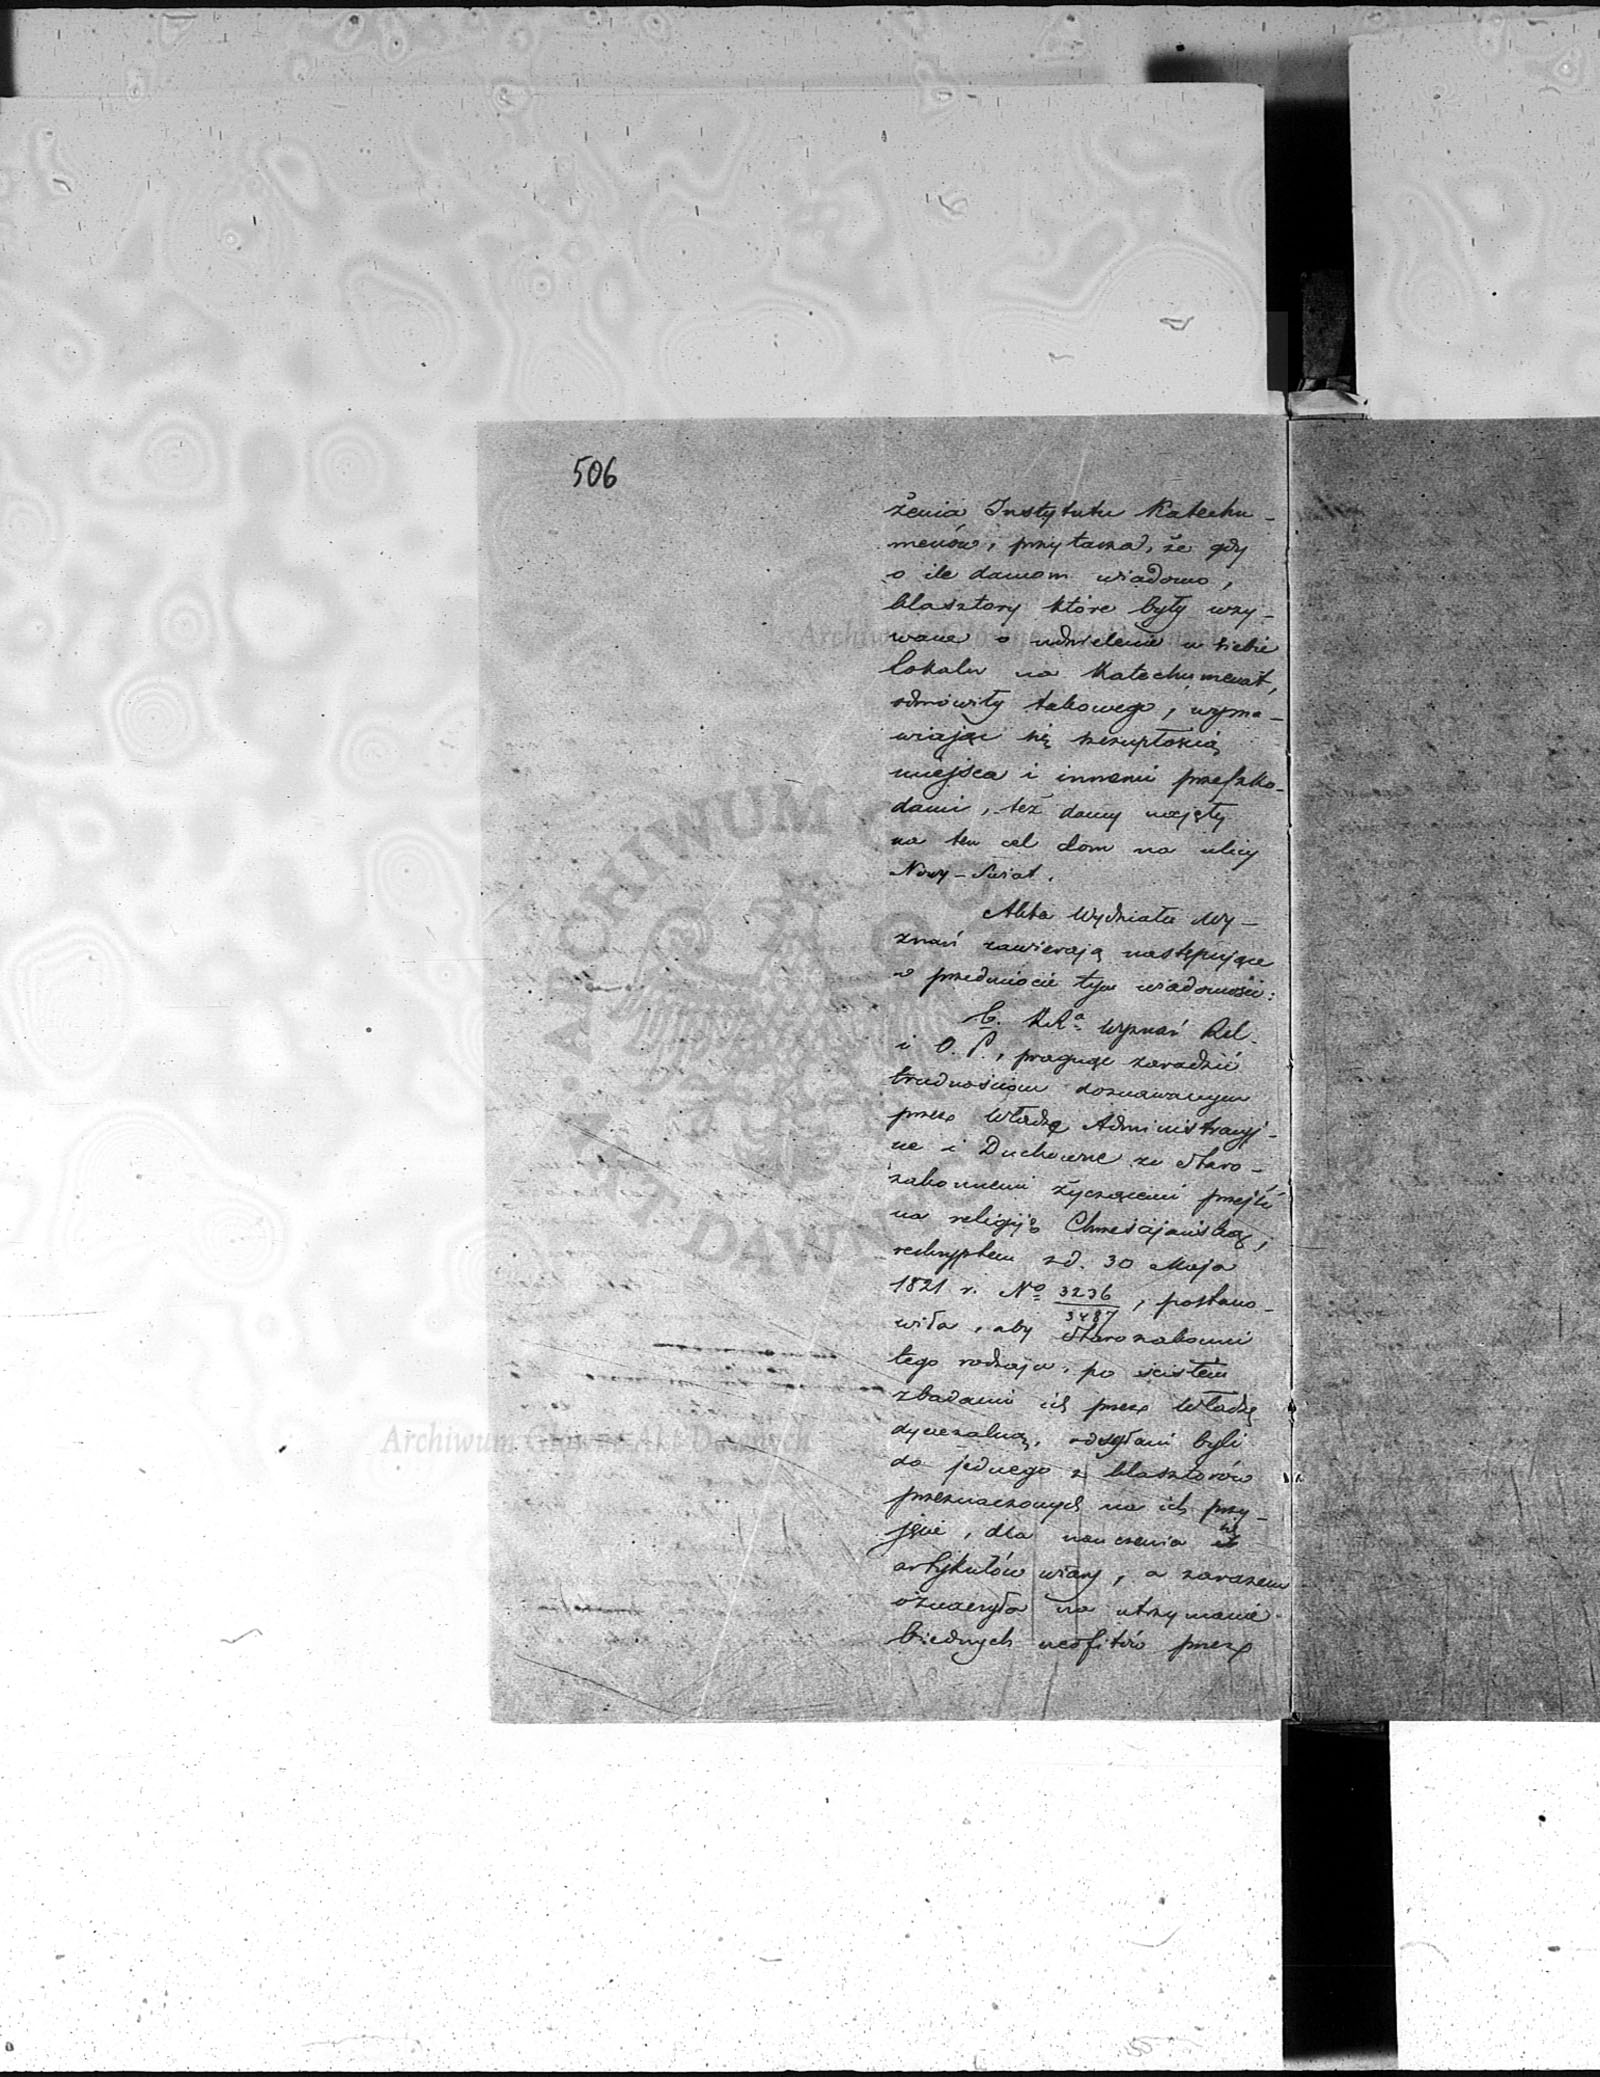 506
żenia Instytutu Katechu-
menów, przytacza, że gdy
o ile damom wiadomo,
klasztory które były wzy-
wane o udzielenie u siebie
lokalu na Katechumenat,
odmówiły takowego, wyma-
wiając się szczupłością
miejsca i innemi przeszko-
dami, też damy najęły
na ten cel dom na ulicy
Nowy-Świat.
Akta Wydziału Wy-
znań zawierają następujące
w przedmiocie tym wiadomości:
b. KRa Wyznań Rel.
i O. P., pragnąc zaradzić
trudnościom doznawanym
przez Władze Administracyj-
ne i Duchowne ze Staro-
zakonnemi życzącemi przejść
na religiję Chrześcijańską,
reskryptem z d. 30 Maja
1821 r. No 3236/3487, postano-
wiła, aby Starozakonni
tego rodzaju, po ścisłem
zbadaniu ich przez Władzę
dyecezalną, odsyłani byli
do jednego z klasztorów
przeznaczonych na ich przy-
jęcie, dla nauczenia się
artykułów wiary, a zarazem
oznaczyła na utrzymanie
biednych neofitów przez
Archiwum Główne Akt Dawnych
ARCHIWUM GŁÓWNE AKT DAWNYCH